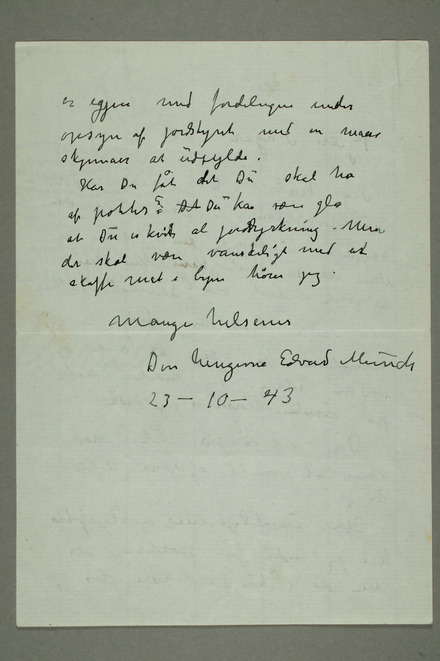 er igjen med fordelingen under
opsyn af jordstyret med en masse
skemaer at udfylde.
Har Du fåt det Du skal ha
af poteter? Det Du kan være gla
at Du er kvit al jorddyrkning. Men
det skal være vanskeligt med at
skaffe mat i byen hører jeg.
Mange hilsener
Din hengivne Edvard Munch
23 – 10 – 43